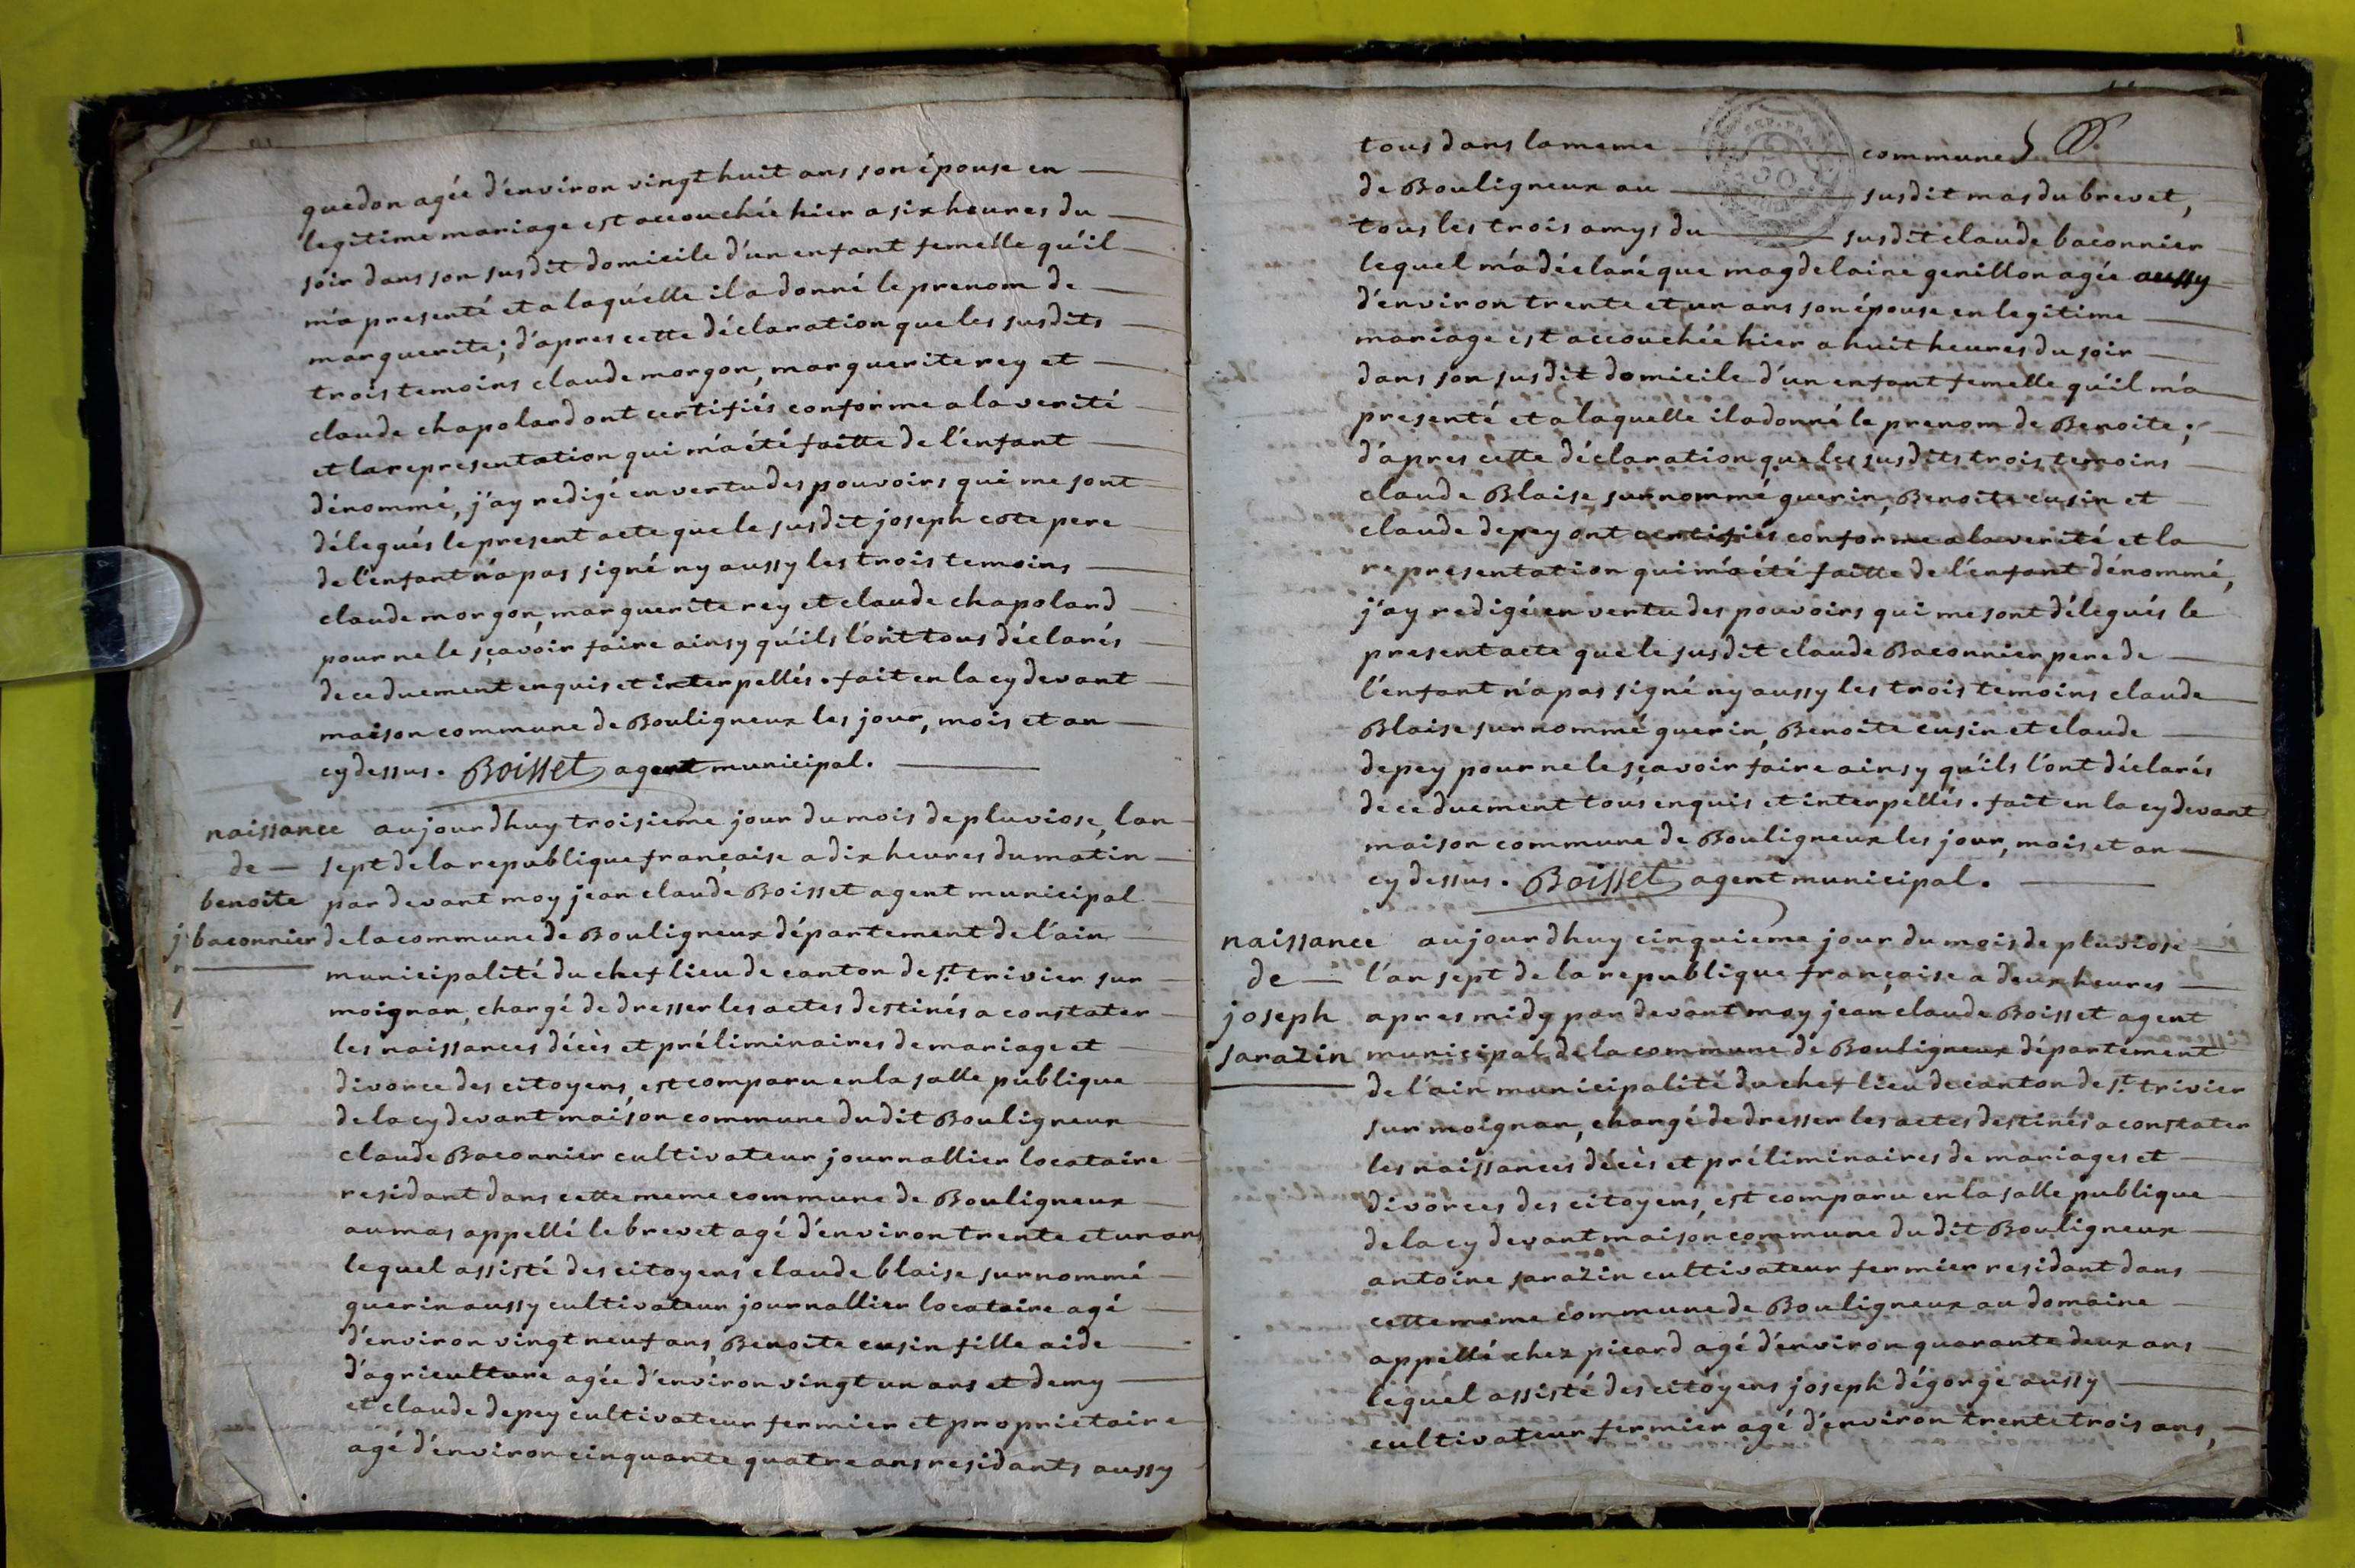 quedon agée d'environ vingt huit ans son épouse en
legitime mariage est accouchée hier a six heures du
soir dans son susdit domicile d'un enfant femelle qu'il
m'a presenté et a laquelle il a donné le prenom de
marguerite; d'apres cette déclaration que les susdits
trois temoins claude morgon, marguerite rey et
claude chapolard ont certifiés conforme a la verité
et la representation qui m'a été faitte de l'enfant
dénommé, j'ay redigé en vertu des pouvoirs qui me sont
délegués le present acte que le susdit joseph cote pere
de l'enfant n'a pas signé ny aussy les trois temoins
claude morgon, marguerite rey et claude chapolard
pour ne le sçavoir faire ainsy qu'ils l'ont tous déclarés
de ce duement enquis et interpellés. fait en la cy devant
maison commune de Bouligneux les jour, mois et an
cy dessus. Boisset agent municipal.
naissance de benoite baconnier
aujourdhuy troisieme jour du mois de pluviose, lan
sept de la republique française a dix heures du matin
par devant moy jean claude Boisset agent municipal
de la commune de Bouligneux département de l'ain
municipalité du chef lieu de canton de st. trivier sur
moignan, chargé de dresser les actes destinés a constater
les naissances décès et préliminaires de mariage et
divorce des citoyens, est comparu en la salle publique
de la cy devant maison commune du dit Bouligneux
claude Baconnier cultivateur journallier locataire
residant dans cette meme commune de Bouligneux
au mas appellé le brevet agé d'environ trente et un ans
lequel assisté des citoyens claude blaise surnommé
guerin aussy cultivateur journallier locataire agé
d'environ vingt neuf ans, Benoite cusin fille aide
d'agriculture agée d'environ vingt un ans et demy
et claude depey cultivateur fermier et proprietaire
agé d'environ cinquante quatre ans residants aussy
tous dans la meme commune
de Bouligneux au susdit mas du brevet,
tous les trois amys du susdit claude baconnier
lequel m'a déclaré que magdelaine genillon agée aussy
d'environ trente et un ans son épouse en legitime
mariage est accouchée hier a huit heures du soir
dans son susdit domicile d'un enfant femelle qu'il m'a
presenté et a laquelle il a donné le prenom de Benoite;
d'apres cette déclaration que les susdits trois temoins
claude Blaise surnommé guerin, Benoite cusin et
claude depey ont certifiés conforme a la verité et la
representation qui m'a été faitte de l'enfant dénommé,
j'ay redigé en vertu des pouvoirs qui me sont délegués le
present acte que le susdit claude Baconnier pere de
l'enfant n'a pas signé ny aussy les trois temoins claude
Blaise surnommé guerin, Benoite cusin et claude
depey pour ne le sçavoir faire ainsy qu'ils l'ont déclarés
de ce duement tous enquis et interpellés. fait en la cy devant
maison commune de Bouligneux les jour, mois et an
cy dessus. Boisset agent municipal.
naissance de joseph sarazin
aujourdhuy cinquieme jour du mois de pluviose
l'an sept de la republique française a deux heures
apres midy par devant moy jean claude Boisset agent
municipal de la commune de Bouligneux département
de l'ain municipalité du chef lieu de canton de st. trivier
sur moignan, chargé de dresser les actes destinés a constater
les naissances décès et préliminaires de mariages et
divorces des citoyens, est comparu en la salle publique
de la cy devant maison commune du dit Bouligneux
antoine sarazin cultivateur fermier residant dans
cette meme commune de Bouligneux au domaine
appellé chez picard agé d'environ quarante deux ans
lequel assisté des citoyens joseph dégorge aussy
cultivateur fermier agé d'environ trente trois ans,